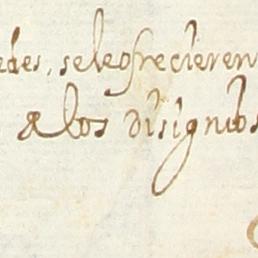 edes, seleofrecieren
a los disignios